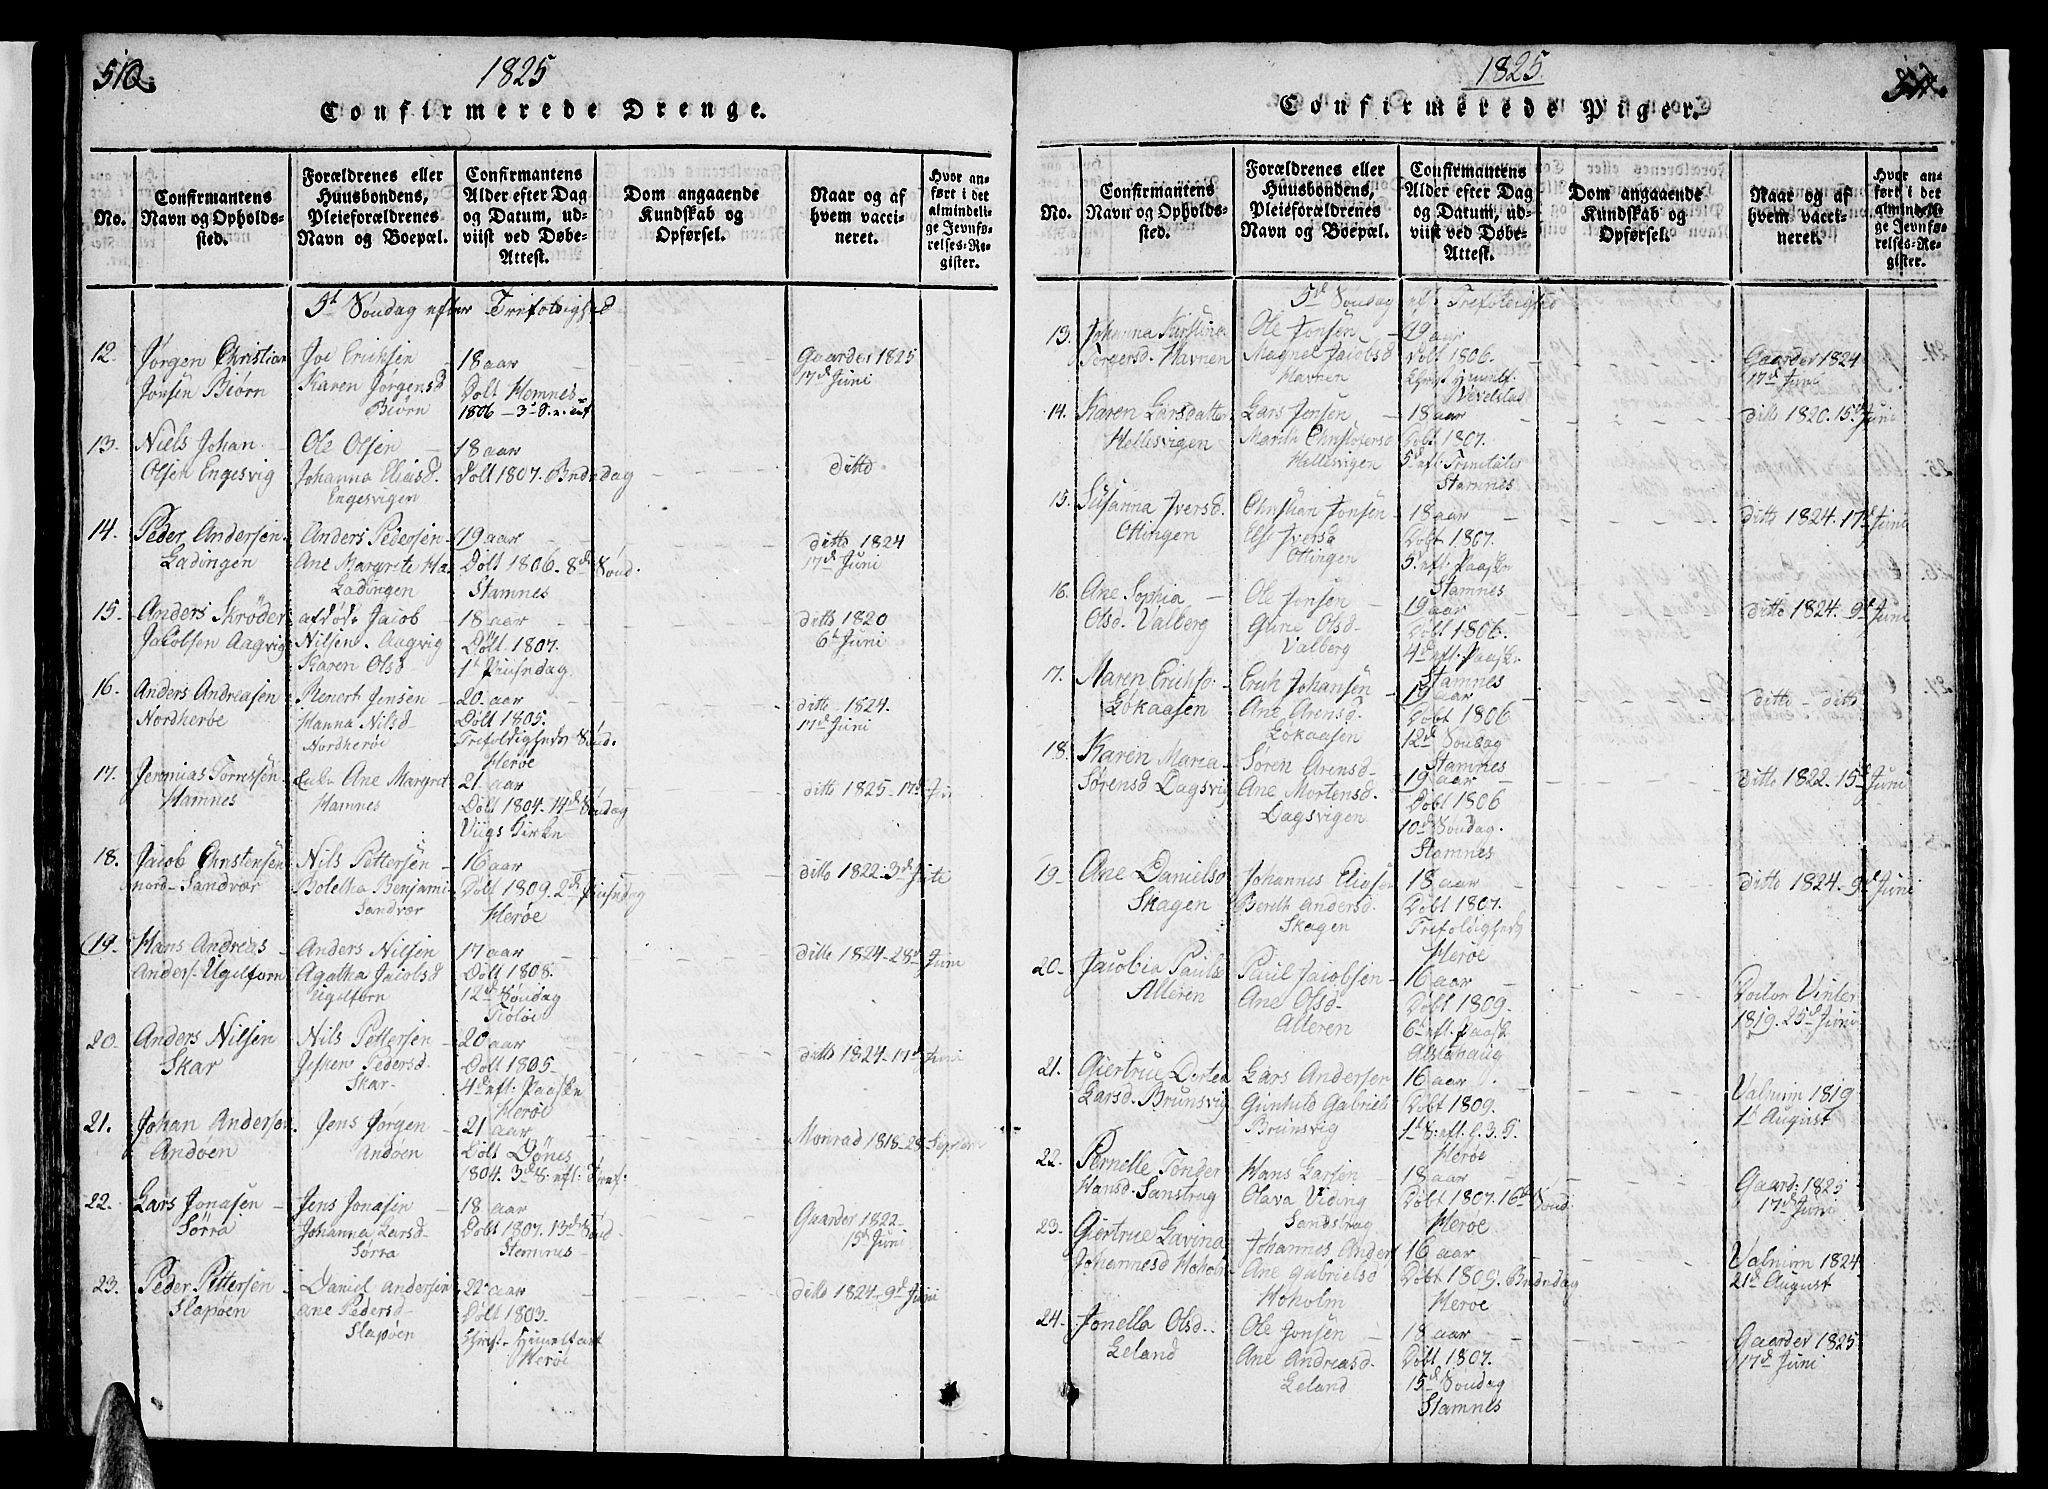 510.
1825
Confirmerede Drenge.
No.
Confirmantens
Navn og Opholds-
sted.
Forældrenes eller
Huusbondens,
Pleieforældrenes
Navn og Boepæl.
Confirmantens
Alder efter Dag
og Datum, ud-
viist ved Døbe-
Attest.
Dom angaaende
Kundskab og
Opførsel.
Naar og af
hvem vacci-
neret.
Hvor an-
ført i det
almindeli-
ge Jevnfø-
relses-Re-
gister.
5t Søndag efter Trefoldighed
12. Jørgen Christian
Jonsen Biørn
Joe Erichsen
Karen Jørgensd
Biørn
18 aar
Døbt Hamnes
1806 – 3d S.
Gaarder 1825
17d Juni
13. Niels Johan
Olsen Engesvig
Ole Olsen
Johanna Eliasd.
Engesvigen
18 aar
Døbt 1807. Bededag
ditto
14. Peder Andersen
Ladingen
Anders Pedersen
Ane Margrete Ha.
Ladingen
19 aar
Døbt 1806. 8d Sønd.
Stamnes
ditto 1824
17d Juni
15. Anders Skrøder
Jacobsen Aagvig
afdøde Jacob
Nilsen. Aagvig
Karen Olsd
18 aar
Døbt 1807.
1t Pintsedag
ditto 1820
6t Juni
16. Anders Andreasen
Nordherøe
Renert Jensen
Hanna Nilsd
Nordherøe
20. aar
Døbt 1805.
Trefoldigheds Sønd.
Herøe
ditto 1824.
17d Juni
17. Jeremias Tornesen
Hamnes
Ane Margret
Hamnes
21. aar
Døbt 1804. 14d Søndag
Viigs Kirke
ditto 1825. 17d Juni
18. Jacob Christensen
nord-Sandvær
Nils Pettersen
Boletha Benjami
Sandvær
16 aar
Døbt 1809. 2d Pintsedag
Herøe
ditto 1822. 3d
19. Hans Andreas
Anders. Ugelforn
Anders Nilsen
Agatha Jacobsd
Ugelforn
17 aar
Døbt 1808.
12d Søndag
Tiøtøe
ditto 1824. 28d Juni
20. Anders Nilsen
Skar
Nils Pettersen
Pedersd.
Skar
20 aar
Døbt 1805.
4d eft: Paaske
Herøe
ditto 1824. 17d Juni
21. Johan Andersen
Andøen
Jens Jørgen
Andøen
21 aar
Døbt Dønes
1804. 3d S. eft: Tref:
Monrad 1818. 28
22. Lars Jonasen
Sørra
Jens Jonasen
Johanna Larsd
Sørra
18 aar
Døbt 1807. 13d Sønd
Stamnes
Gaarder 1822
15d Juni
23. Peder Pettersen
Slapøen
Daniel Andersen
Ane Pedersd
Slapøen
22 aar
Døbt 1803.
Christ. Himmelfart
Herøe
ditto 1824. 9d Juni
1825.
Confirmerede Piger.
No.
Confirmantens
Navn og Opholds-
sted.
Forældrenes eller
Huusbondens,
Pleieforældrenes
Navn og Boepæl.
Confirmantens
Alder efter Dag
og Datum, ud-
viist ved Døbe-
Attest.
Dom angaaende
Kundskab og
Opførsel.
Naar og af
hvem vacci-
neret.
Hvor an-
ført i det
almindeli-
ge Jevnfø-
relses-Re-
gister.
5d Søndag eft: Trefoldighed
13. Johanna Kirstina
Havnen
Ole Jonsen
Magnel Jacobsd
Havnen
19 aar
Døbt 1806.
Christ Himelf.
Vevelstad
Gaarder 1824
17d Juni
14. Karen Larsdatter
Hellesvigen
Lars Jensen
Marith Christofersd
Hellesvigen
18 aar
Døbt 1807.
5d eft Trinitatis
Stamnes
ditto 1820. 15d Juni
15. Susanna Iversd.
Ottingen
Christian Jonsen
Else Iversd
Ottingen
18 aar
Døbt 1807.
5t eft. Paaske
Stamnes
ditto 1824. 17d Juni
16. Ane Sophia
Olsd. Valberg
Ole Jonsen
Guru Olsd
Valberg
19 aar
Døbt 1806.
4d eft. Paaske
Stamnes
ditto 1824. 9d Juni
17. Maren Erichsd.
Løkaasen
Erich Johansen
Ane Arensd.
Løkaasen
19 aar
Døbt 1806
12d Søndag
Stamnes
ditto – ditto
18. Karen Maria
Sørensd Dagsvig
Søren Arensd
Ane Mortensd.
Dagsvigen
19 aar
Døbt 1806
10d Søndag.
Stamnes
ditto 1822. 15d Juni
19. Ane Danielsd
Skagen
Johannes Eliasen
Bereth Andersd.
Skagen
18 aar
Døbt 1807.
Trefoldigheds
Herøe
ditto 1824. 9d Juni
20. Jacobia Paulsd
Alteren
Paul Jacobsen
Ane Olsd.
Alteren
16 aar
Døbt 1809.
6t eft. Paaske
Alstahaug
Doctor Vinter
1819. 25d Juni
21. Giertrue Dortea
Larsd. Brunsvig
Lars Andersen
Gunhild Gabriels
Brunsvig
16 aar
Døbt 1809.
1t S. eft. H. 3. K.
Herøe
Valnum 1819
1t August
22. Pernelle Tønder
Hansd. Sanstrag
Hans Larsen
Olava Viding
Sandstrag
18 aar
Døbt 1807. 16de Sønd
Herøe
Gaard: 1825
17d Juni
23. Giertrue Lavina
Johannesd Hoholm
Johannes Anders
Ane Gabrielsd
Hoholm
16 aar
Døbt 1809. Bededag
Herøe
Valnum 1824
21d August
24. Jonella Olsd.
Leland
Ole Jonsen
Ane Andreasd.
Leland
18 aar
Døbt 1807.
15d Søndag
Stamnes
Gaarder 1825
17d Juni